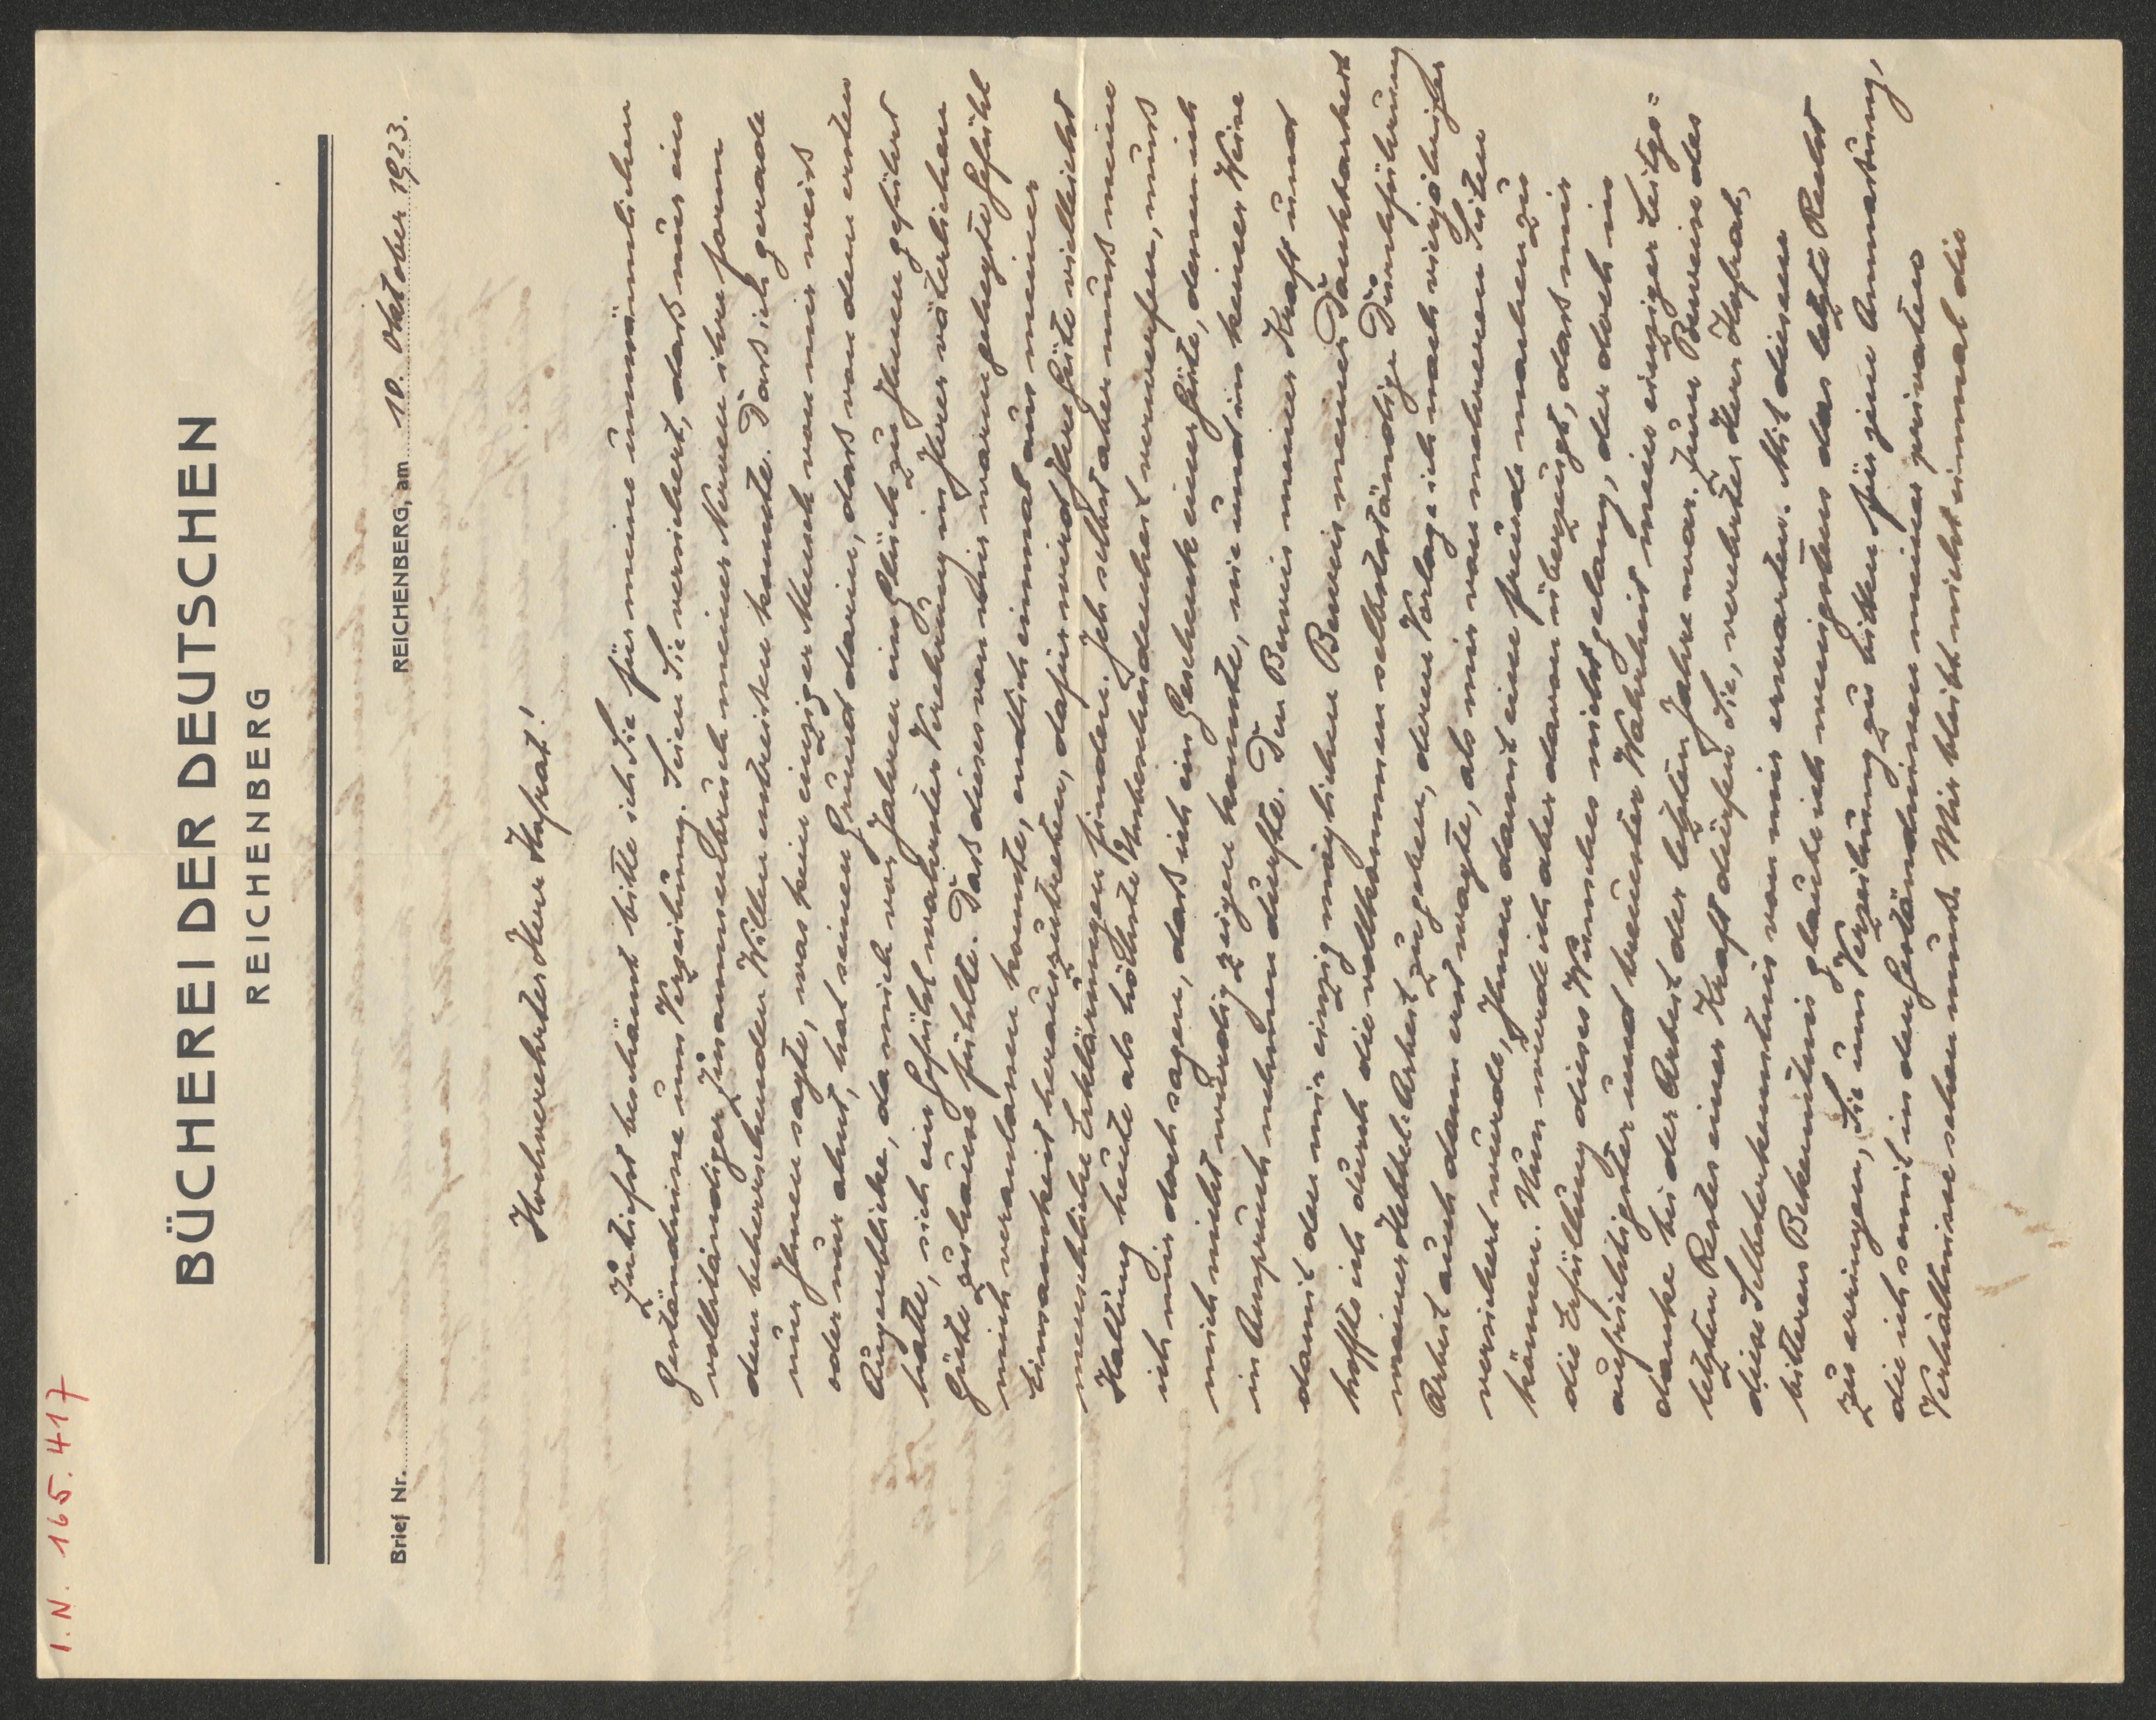 I. N. 165.417
BÜCHEREI DER DEUTSCHEN
REICHENBERG
Brief Nr. REICHENBERG, am 10. Oktober 1923.
Hochverehrter Herr Hofrat!
Zutiefst beschämt bitte ich Sie für meine unmännlichen
Geständnisse um Verzeihung. Seien Sie versichert, dass nur ein
vollständiger Zusammenbruch meiner Nerven ihre Form
dem beherrschenden Willen entreissen konnte. Dass ich gerade
nur Ihnen sagte, was kein einziger Mensch von mir weiss
oder nur ahnt, hat seinen Grund darin, dass von dem ersten
Augenblicke, da mich vor Jahren ein Glück zu Ihnen geführt
hatte, sich ein Gefühl wahrster Verehrung in Ihrer väterlichen
Güte zuhause fühlte. Dass dieses von mir warm gehegte Gefühl
mich veranlassen konnte, endlich einmal aus meiner
Einsamkeit herauszutreten, dafür wird Ihre Güte vielleicht
menschliche Erklärungen finden. Ich selbst aber muss meine
Haltung heute als höchste Unbescheidenheit verwerfen, muss
ich mir doch sagen, dass ich ein Geschenk einer Güte, deren ich
mich nicht würdig zeigen konnte, nie und in keiner Weise
in Anspruch nehmen durfte. Den Beweis meiner Kraft und
damit den mir einzig möglichen Beweis meiner Dankbarkeit
hoffte ich durch die vollkommen selbstständige Durchführung
meiner Hebbel-Arbeit zu geben, deren Vorlage ich nach vierjähriger
Arbeit auch dann erst wagte, als mir von mehreren Seiten
versichert wurde, Ihnen damit eine Freude machen zu
können. Nun wurde ich aber davon überzeugt, dass mir
die Erfüllung dieses Wunsches nicht gelang, der doch in
aufrichtigster und treuester Wahrheit mein einziger Leitge=
danke bei der Arbeit der letzten Jahre war. Zum Beweise des
letzten Restes einer Kraft dürfen Sie, verehrter Herr Hofrat,
diese Selbsterkenntnis von mir erwarten. Mit diesem
bitteren Bekenntnis glaube ich wenigstens das letzte Recht
zu erringen, Sie um Verzeihung zu bitten für jene Anmassung,
die ich somit in den Geständnissen meiner privaten
Verhältnisse sehen muss. Mir bleibt nicht einmal die